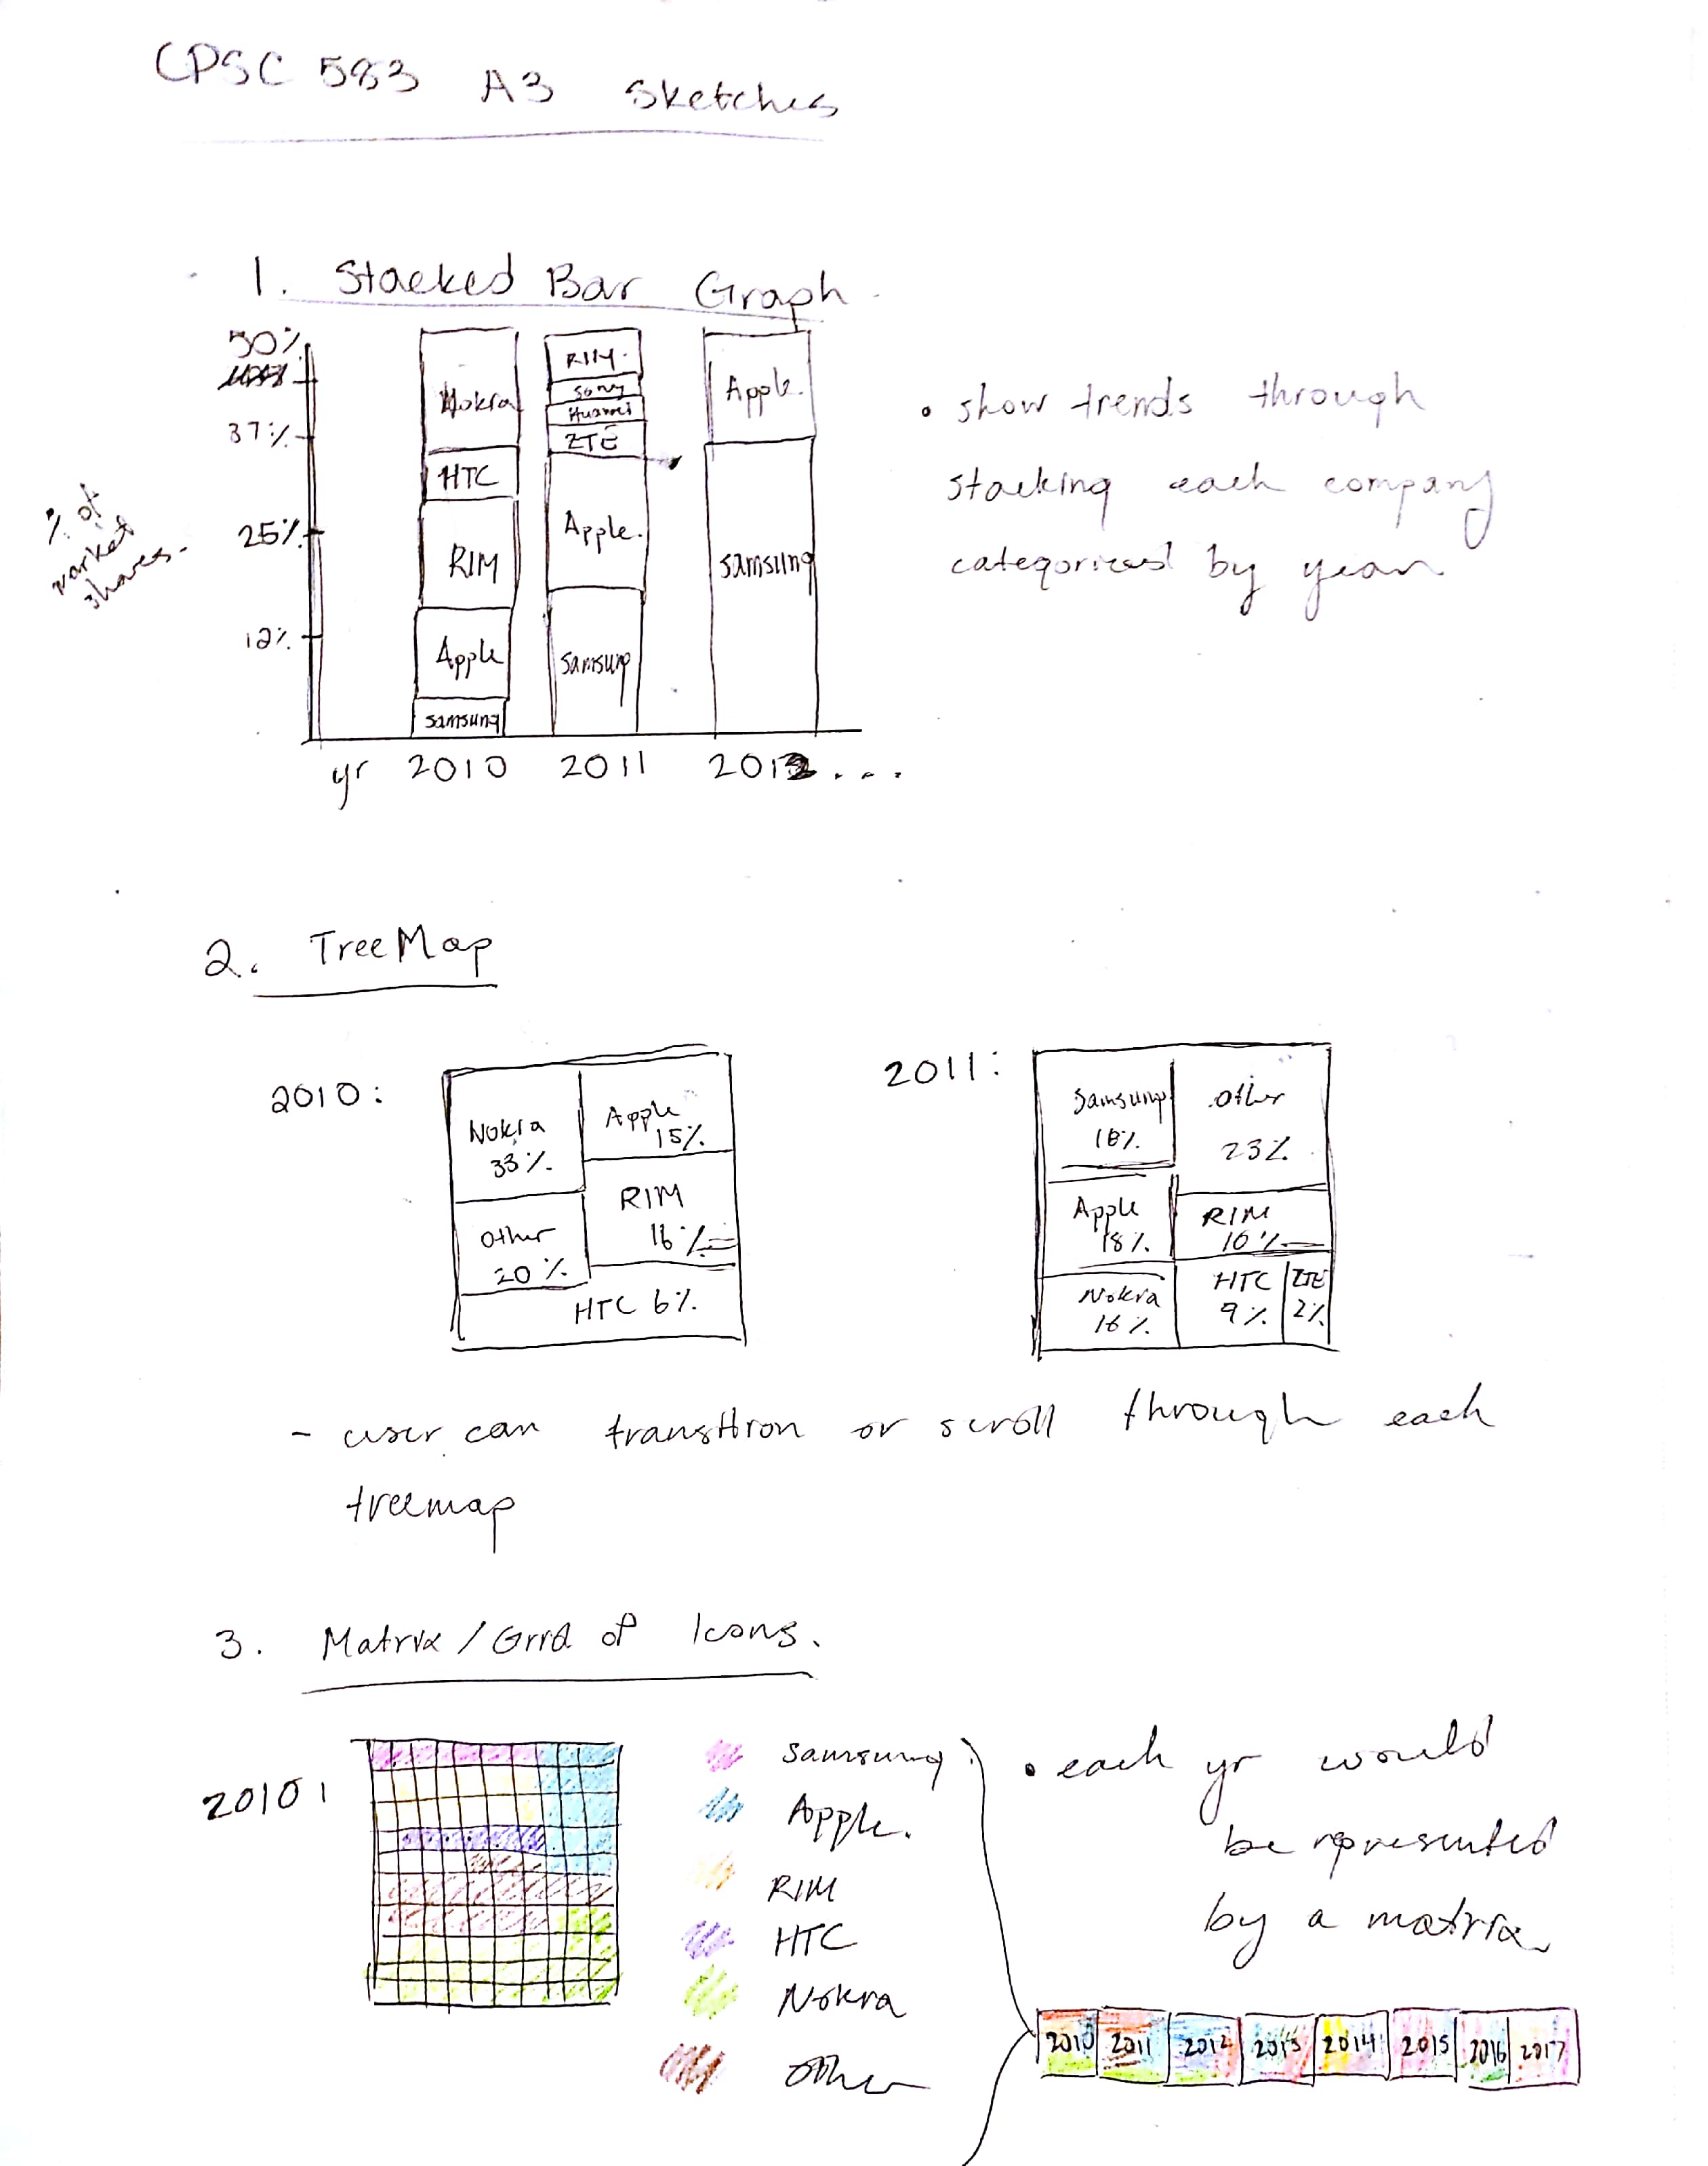 CPSC 583 A3 Sketches
1. Stacked Bar Graph
50%
37%
25%
12%
% of
market
shares.
Nokia
HTC
RIM
Apple
Samsung
RIM.
Sony
Huawei
ZTE
Apple.
Samsung
Apple.
Samsung
yr 2010 2011 2012...
• show trends through
stacking each company
categorized by year
2. TreeMap
2010:
Nokia
33%
Apple
15%
RIM
16%
Other
20%
HTC 6%
2011:
Samsung
18%
Other
23%
Apple
18%
RIM
10%
Nokia
16%
HTC
9%
ZTE
2%
- user can transition or scroll through each
treemap
3. Matrix/Grid of Icons.
2010:
Samsung
Apple.
RIM
HTC
Nokia
Other
• each yr would
be represented
by a matrix
2010 2011 2012 2013 2014 2015 2016 2017